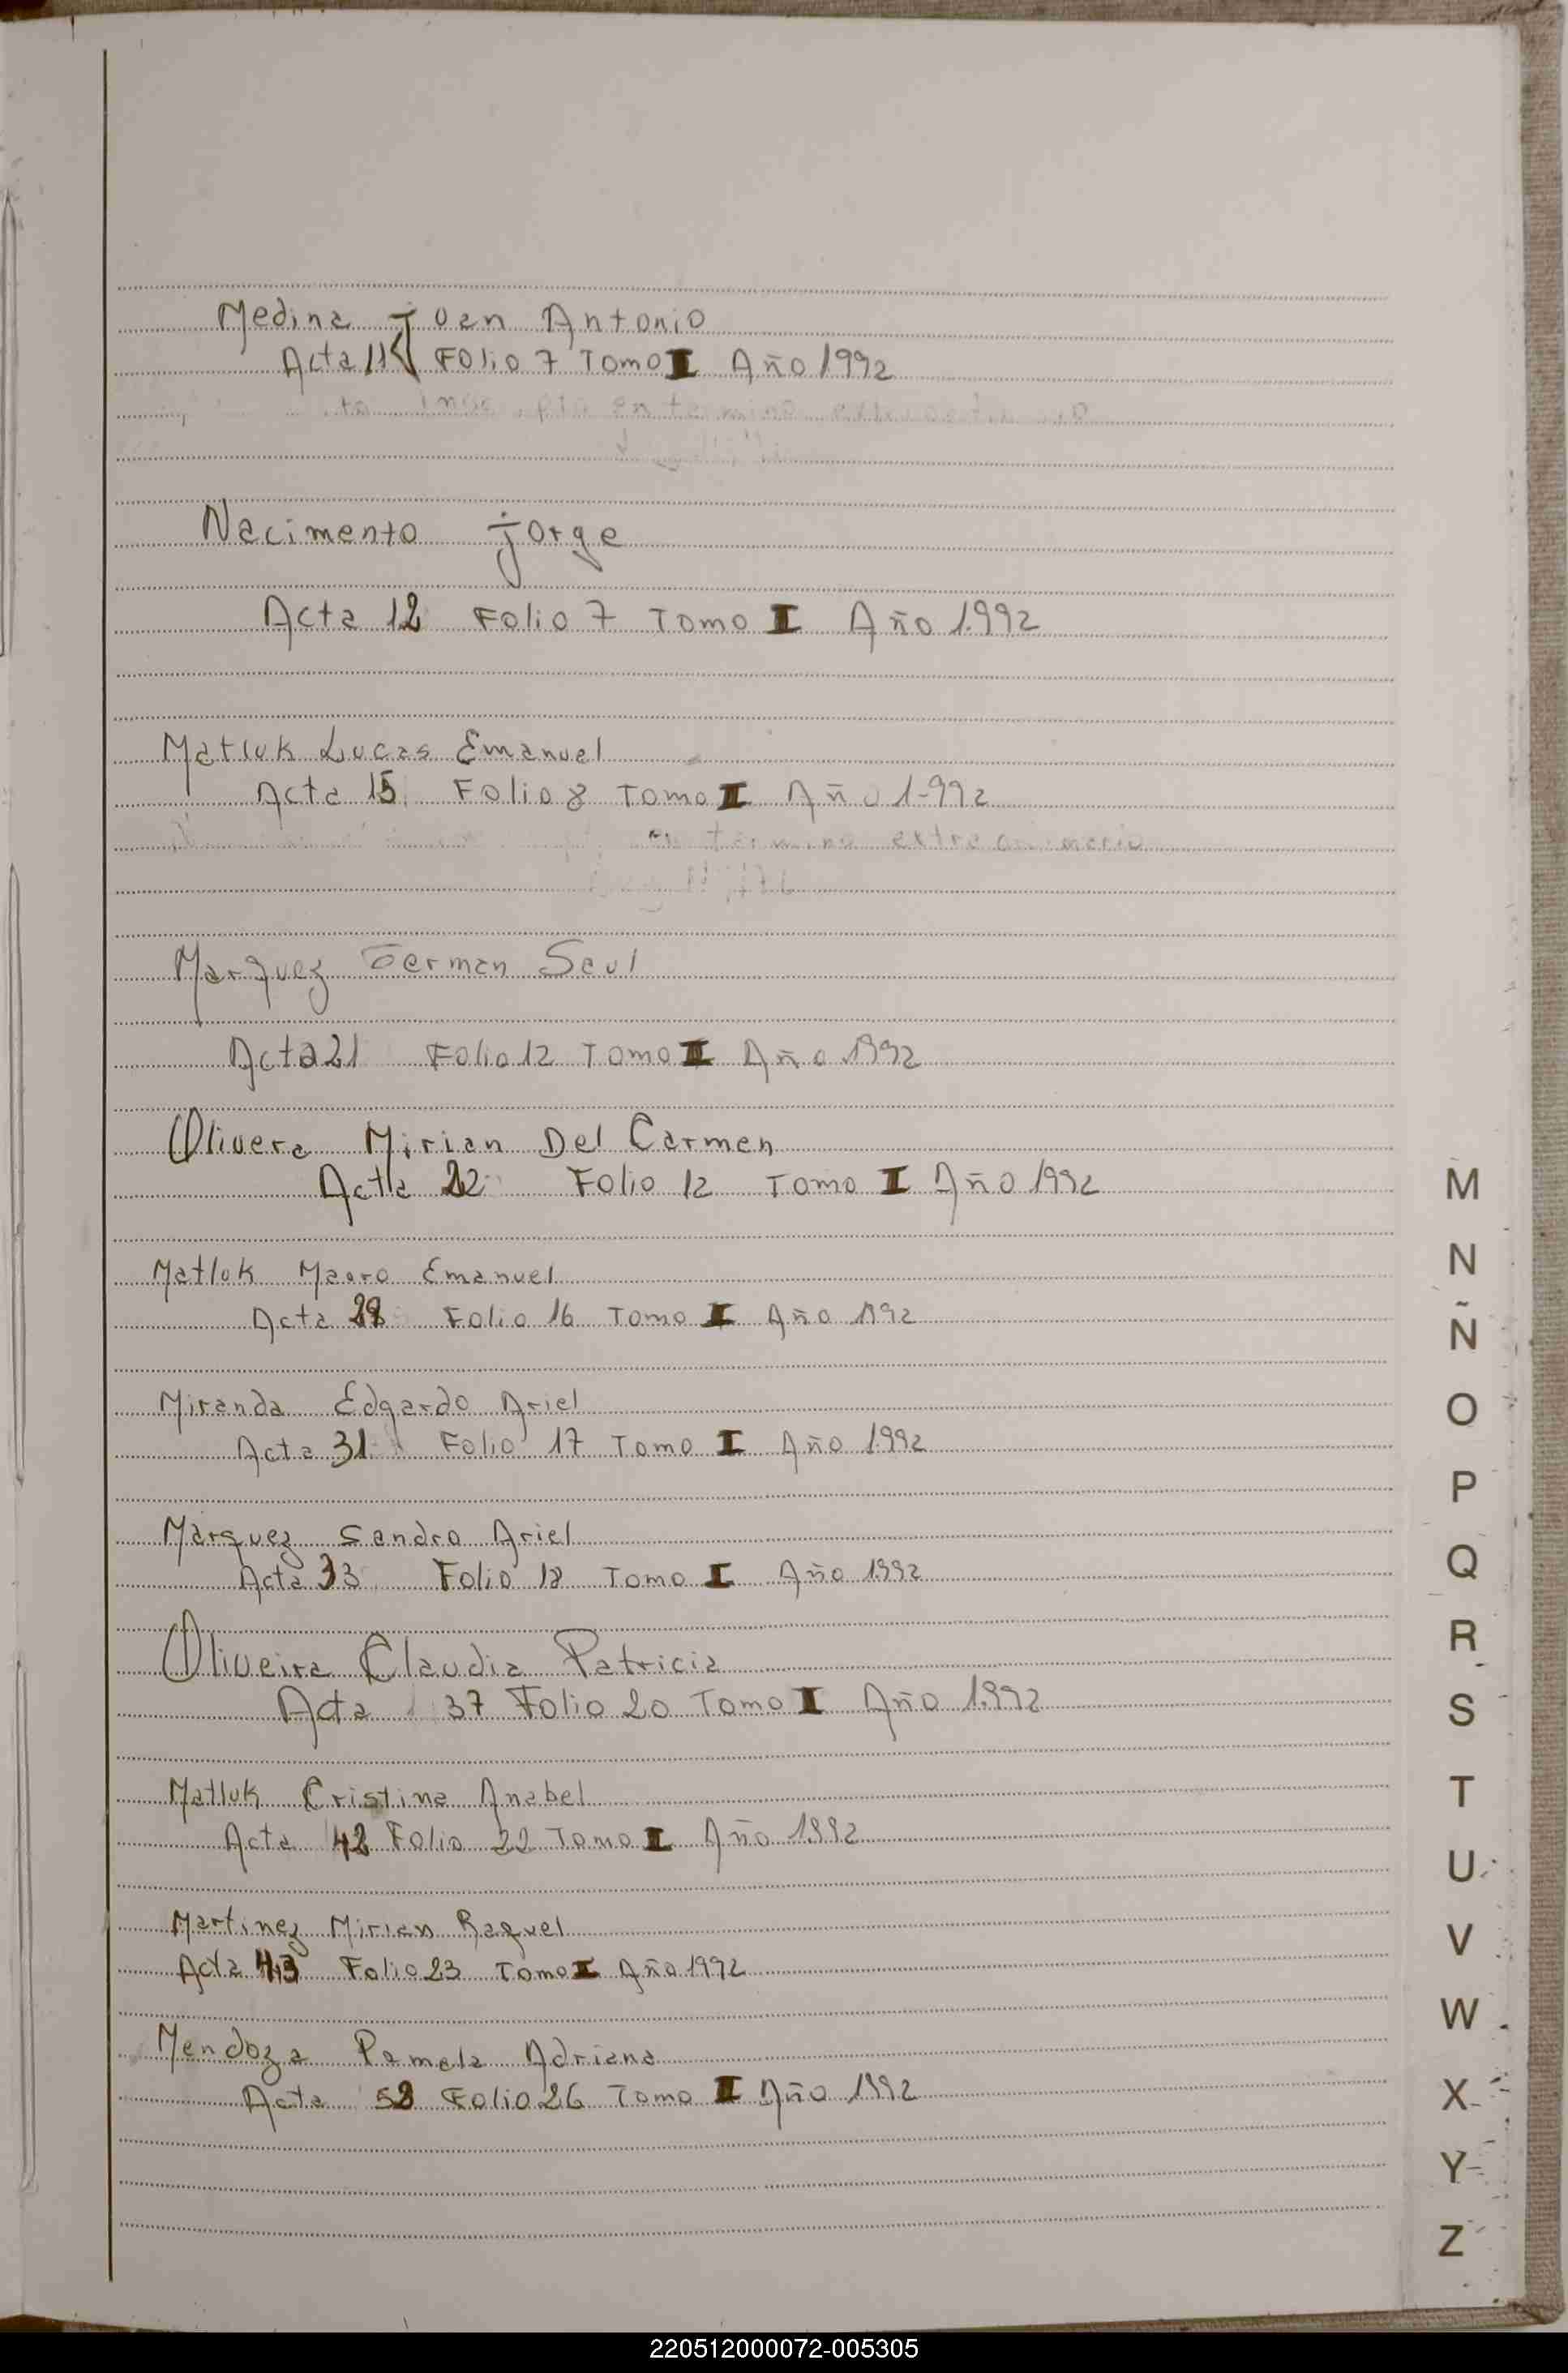 Medina Juan Antonio
Acta 11 Folio 7 Tomo I Año 1992
en termino
Nacimento jorge
Acta 12 Folio 7 Tomo I Año 1992
Matluk Lucas Emanuel
Acta 15 Folio 8 Tomo I Año 1992
en termino
Marquez German Saul
Acta 21 Folio 12 Tomo I Año 1992
Olivera Mirian Del Carmen
Acta 22 Folio 12 Tomo I Año 1992
Matluk Mauro Emanuel
Acta Folio 16 Tomo I Año 1992
Miranda Edgardo Ariel
Acta 31 Folio 17 Tomo I Año 1992
Marquez Sandro Ariel
Acta 33 Folio 18 Tomo I Año 1992
Oliveira Claudia Patricia
Acta 37 Folio 20 Tomo I Año 1992
Matluk Cristina Anabel
Acta 42 Folio 22 Tomo I Año 1992
Martinez Mirian Raquel
Acta 43 Folio 23 Tomo I Año 1992
Mendoza Pamela Adriana
Acta 52 Folio 26 Tomo I Año 1992
M
N
Ñ
O
P
Q
R
S
T
U
V
W
X
Y
Z
220512000072-005305